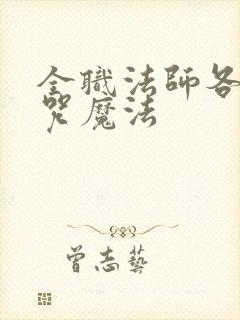 全職法師各
咒魔法
曾志藝